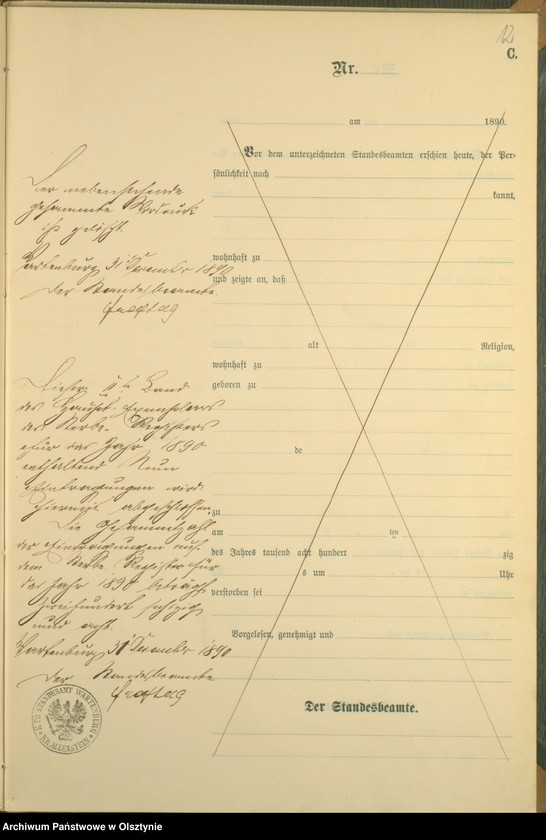 12
C.
Nr.
am 1890.
Vor dem unterzeichneten Standesbeamten erschien heute, der Per-
sönlichkeit nach
kannt,
wohnhaft zu
und zeigte an, daß
alt Religion,
wohnhaft zu
geboren zu
de
zu
am ten
des Jahres tausend acht hundert zig
s um Uhr
verstorben sei
Vorgelesen, genehmigt und
Der Standesbeamte.
Der nebenstehende
gesammte Vordruck
ist gelöscht.
Wartenburg, 31 Dezember 1890
Der Standesbeamte.
Freytag
Dieser II te Band
des Haupt-Exemplars
des Sterbe-Registers
für das Jahr 1890
enthaltend Neun
Eintragungen wird
hiermit abgeschlossen.
Die Gesammtzahl
der Eintragungen auf
dem Sterbe Register für
das Jahr 1890 beträgt
Zweihundert sechzig
und acht.
Wartenburg, 31 Dezember 1890
Der Standesbeamte
Freytag
K. PR. STANDESAMT WARTENBURG
KR. ALLENSTEIN
Archiwum Państwowe w Olsztynie